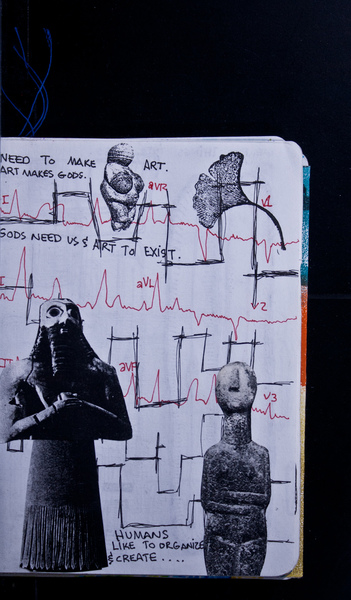 NEED TO MAKE ART.
ART MAKES GODS.
I aVR V1
GODS NEED US & ART TO EXIST.
aVL 2
aVF V3
HUMANS
LIKE TO ORGANIZE
& CREATE ....